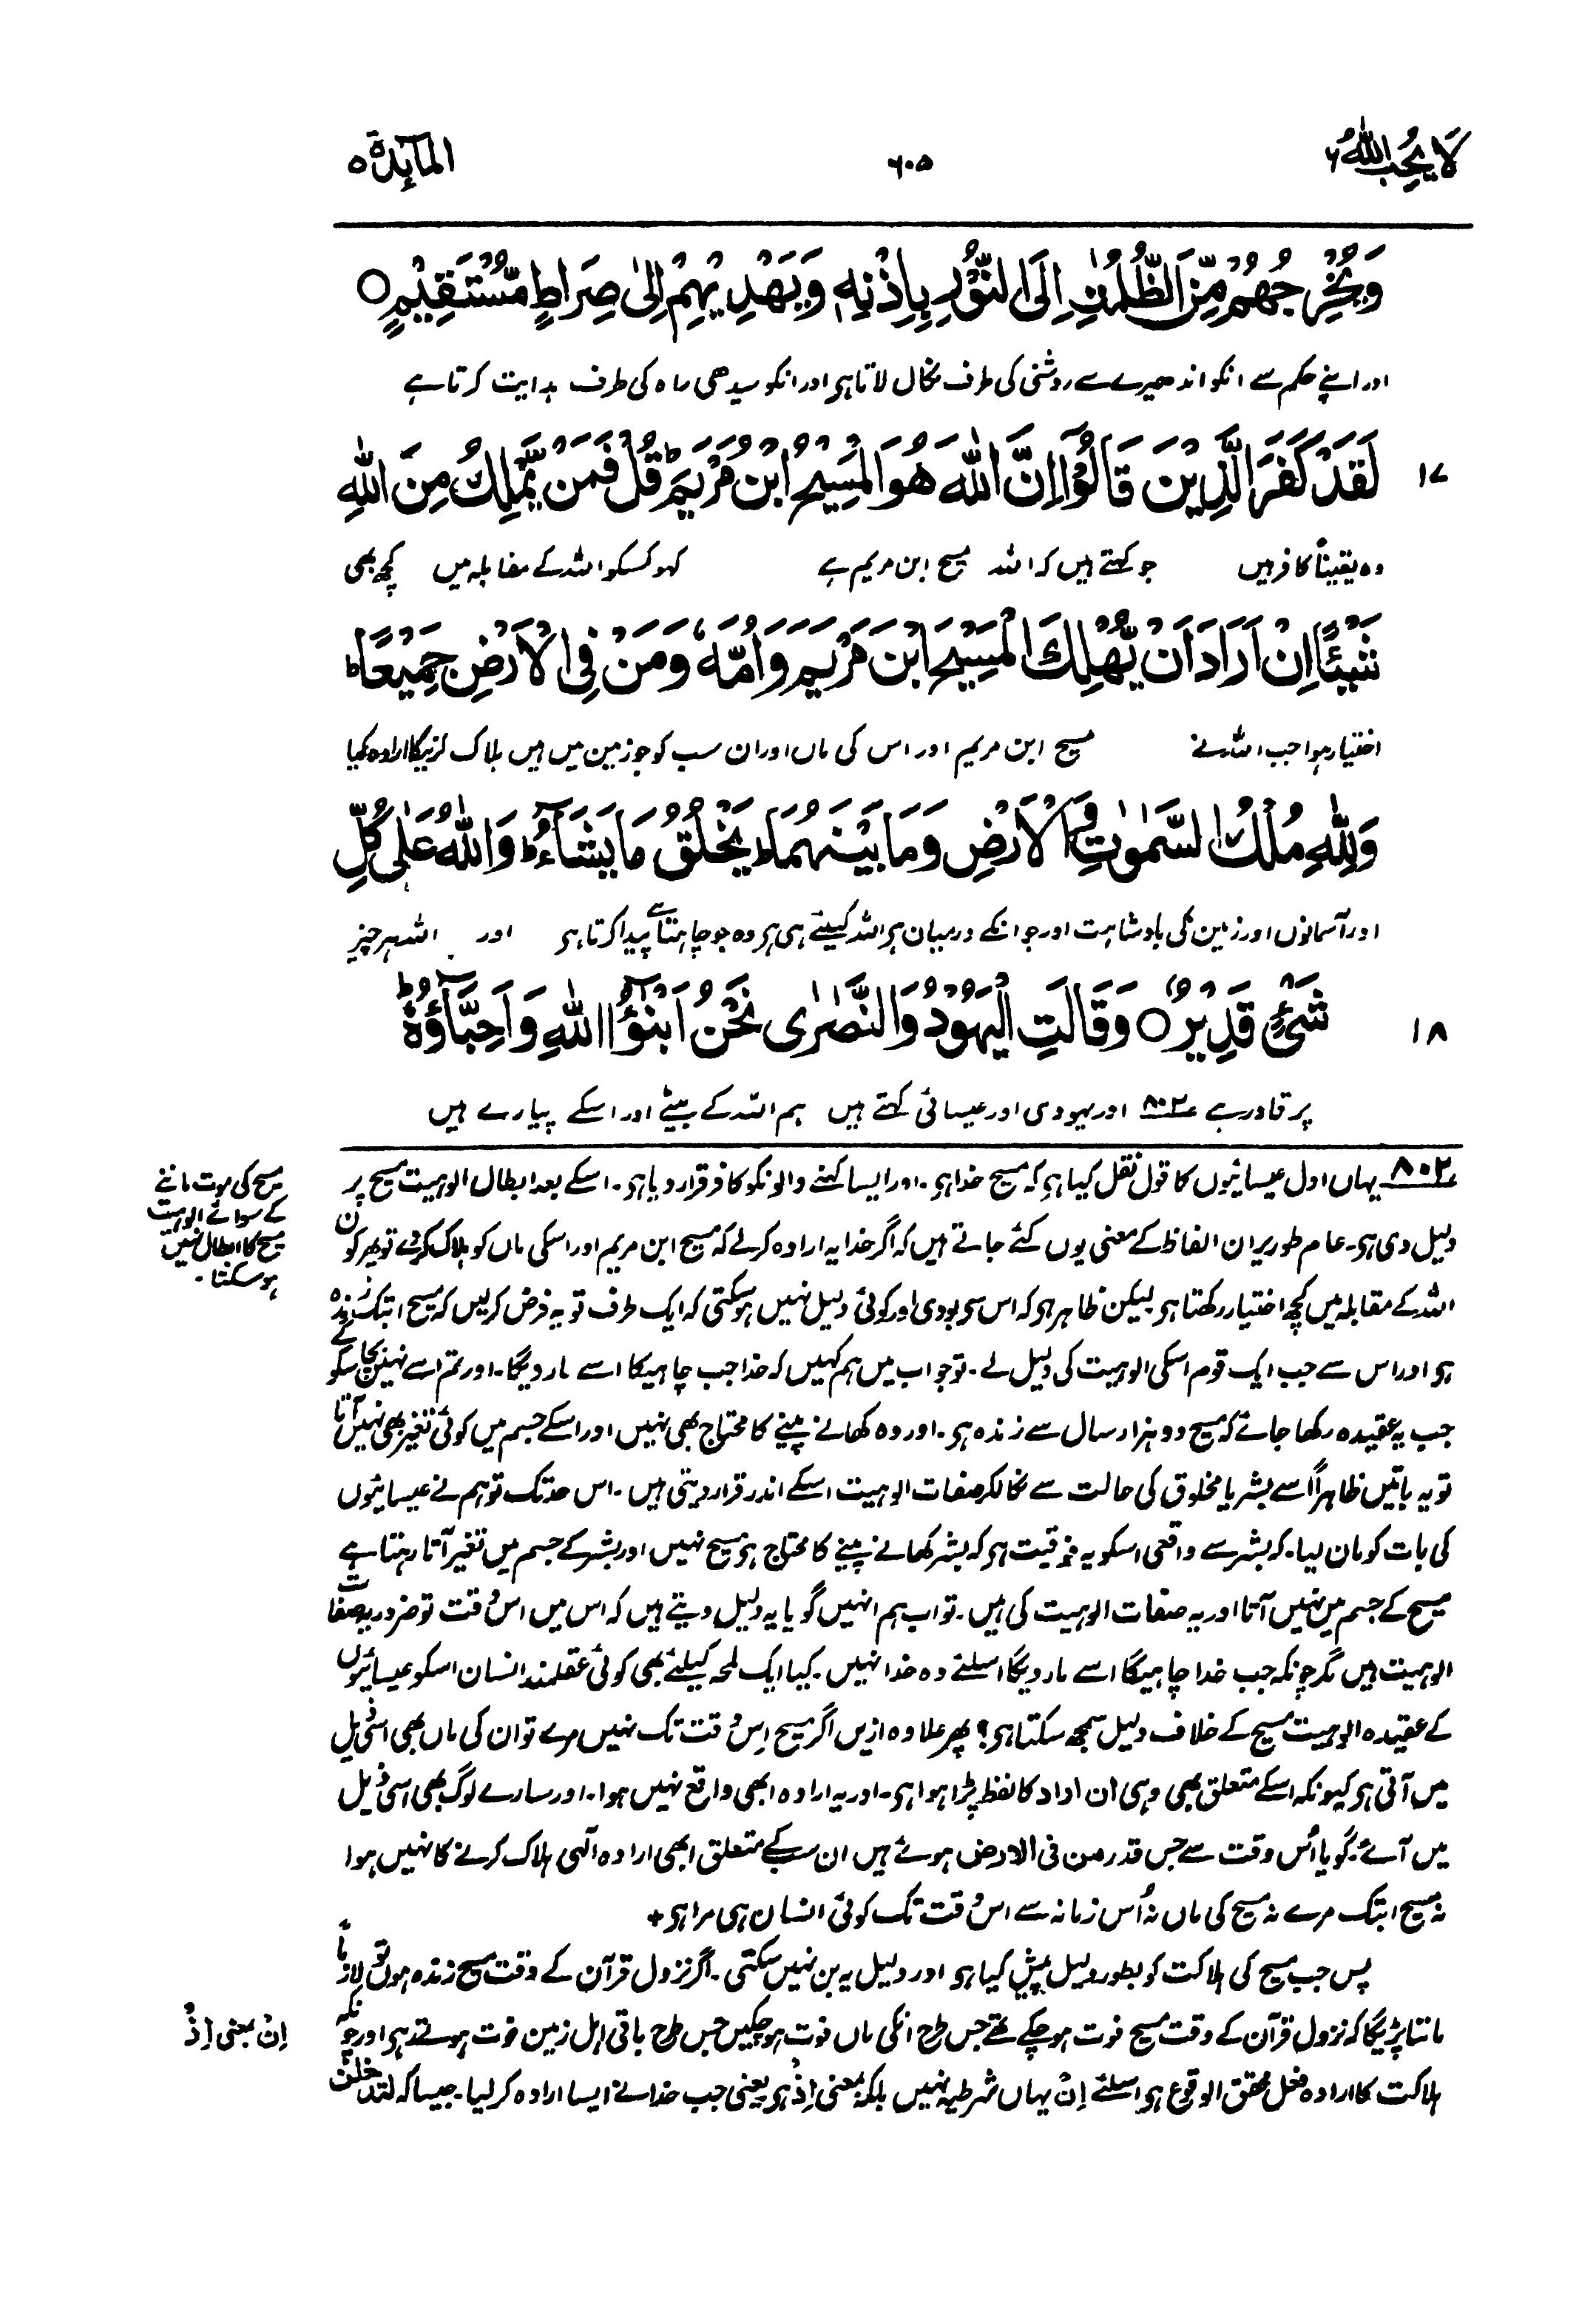 لَا یُحِبُّ اللّٰہُ ۶
۶۰۵
المآئدۃ ۵
وَیُخْرِجُهُمْ مِّنَ الظُّلُمٰتِ اِلَی النُّوْرِ بِاِذْنِهٖ وَیَهْدِیْهِمْ اِلٰی صِرَاطٍ مُّسْتَقِیْمٍ ○
اور اپنے حکم سے انکو اندھیرے سے روشنی کی طرف نکال لاتا ہی اور انکو سیدھی راہ کی طرف ہدایت کرتا ہے
۱۷ لَقَدْ کَفَرَ الَّذِیْنَ قَالُوْٓا اِنَّ اللّٰهَ هُوَ الْمَسِیْحُ ابْنُ مَرْیَمَ ؕ قُلْ فَمَنْ یَّمْلِكُ مِنَ اللّٰهِ
وہ یقیناً کافر ہیں جو کہتے ہیں کہ اللہ مسیح ابن مریم ہے کہو کسکو اللہ کے مقابلہ میں کچھ بھی
شَیْئًا اِنْ اَرَادَ اَنْ یُّهْلِكَ الْمَسِیْحَ ابْنَ مَرْیَمَ وَاُمَّهٗ وَمَنْ فِی الْاَرْضِ جَمِیْعًا ؕ
اختیار ہوا جب اللہ نے مسیح ابن مریم اور اس کی ماں اور ان سب کو جو زمین میں ہیں ہلاک کرنیکا ارادہ کیا
وَلِلّٰهِ مُلْكُ السَّمٰوٰتِ وَالْاَرْضِ وَمَا بَیْنَهُمَا ؕ یَخْلُقُ مَا یَشَآءُ ؕ وَاللّٰهُ عَلٰی کُلِّ
اور آسمانوں اور زمین کی بادشاہت اور جو انکے درمیان ہی اللہ کیلئے ہی ہی وہ جو چاہتا ہے پیدا کرتا ہی اور اللہ ہر چیز
۱۸ شَیْءٍ قَدِیْرٌ ○ وَقَالَتِ الْیَهُوْدُ وَالنَّصٰرٰی نَحْنُ اَبْنٰٓؤُا اللّٰهِ وَاَحِبَّآؤُهٗ ؕ
پر قادر ہے ۸۰۲ اور یہودی اور عیسائی کہتے ہیں ہم اللہ کے بیٹے اور اسکے پیارے ہیں
۸۰۲ یہاں اول عیسائیوں کا قول نقل کیا ہی کہ مسیح خدا ہی۔ اور ایسا کہنے والونکو کافر قرار دیا ہی۔ اسکے بعد ابطال الوہیت مسیح پر
دلیل دی ہی۔ عام طور پر ان الفاظ کے معنی یوں کئے جاتے ہیں کہ اگر خدا یہ ارادہ کرلے کہ مسیح ابن مریم اور اسکی ماں کو ہلاک کردے تو پھر کون
اللہ کے مقابلہ میں کچھ اختیار رکھتا ہی لیکن ظاہر ہی کہ اس سی بودی اور کوئی دلیل نہیں ہوسکتی کہ ایک طرف تو یہ فرض کرلیں کہ مسیح ابتک زندہ
ہی اور اس سے جب ایک قوم اسکی الوہیت کی دلیل لے۔ تو جواب میں ہم کہیں کہ خدا جب چاہیگا اسے مار دیگا۔ اور تم اسے نہیں بچا سکوگے
جب یہ عقیدہ رکھا جائے کہ مسیح دو ہزار سال سے زندہ ہی۔ اور وہ کھانے پینے کا محتاج بھی نہیں اور اسکے جسم میں کوئی تغیر بھی نہیں آتا
تو یہ باتیں ظاہراً اسے بشر یا مخلوق کی حالت سے نکالکر صفات الوہیت اسکے اندر قرار دیتی ہیں۔ اس حد تک تو ہم نے عیسائیوں
کی بات کو مان لیا۔ کہ بشر سے واقعی اسکو یہ فوقیت ہی کہ بشر کھانے پینے کا محتاج ہی مسیح نہیں اور بشر کے جسم میں تغیر آتا رہتا ہے
مسیح کے جسم میں نہیں آتا اور یہ صفات الوہیت کی ہیں۔ تو اب ہم انہیں گویا یہ دلیل دیتے ہیں کہ اس میں اسوقت تو ضرور یہ صفات
الوہیت ہیں مگر چونکہ جب خدا چاہیگا اسے مار دیگا اسلئے وہ خدا نہیں۔ کیا ایک لمحہ کیلئے بھی کوئی عقلمند انسان اسکو عیسائیوں
کے عقیدہ الوہیت مسیح کے خلاف دلیل سمجھ سکتا ہی؟ پھر علاوہ ازیں اگر مسیح اِسوقت تک نہیں مرے تو ان کی ماں بھی اسی ذیل
میں آتی ہی کیونکہ اسکے متعلق بھی وہی ان اراد کا لفظ پڑا ہوا ہی۔ اور یہ ارادہ ابھی واقع نہیں ہوا۔ اور سارے لوگ بھی اسی ذیل
میں آئے۔ گویا اُس وقت سے جس قدر من فی الارض ہوئے ہیں ان سب کے متعلق ابھی ارادہ الٰہی ہلاک کرنے کا نہیں ہوا
نہ مسیح ابتک مرے نہ مسیح کی ماں نہ اُس زمانہ سے اسوقت تک کوئی انسان ہی مرا ہی +
پس جب مسیح کی ہلاکت کو بطور دلیل پیش کیا ہی اور دلیل یہ بن نہیں سکتی۔ اگر نزول قرآن کے وقت مسیح زندہ ہوں تو لازماً
ماننا پڑیگا کہ نزول قرآن کے وقت مسیح فوت ہوچکے تھے جس طرح انکی ماں فوت ہوچکیں جس طرح باقی اہل زمین فوت ہوتے رہی اور چونکہ
ہلاکت کا ارادہ فعل محقق الوقوع ہی اسلئے اِنْ یہاں شرطیہ نہیں بلکہ بمعنی اِذْ ہی یعنی جب خدا نے ایسا ارادہ کرلیا۔ جیسا کہ لتدخلن
مسیح کی موت ماننے
کے سوائے الوہیت
مسیح کا ابطال نہیں
ہوسکتا۔
اِنْ بمعنی اِذْ